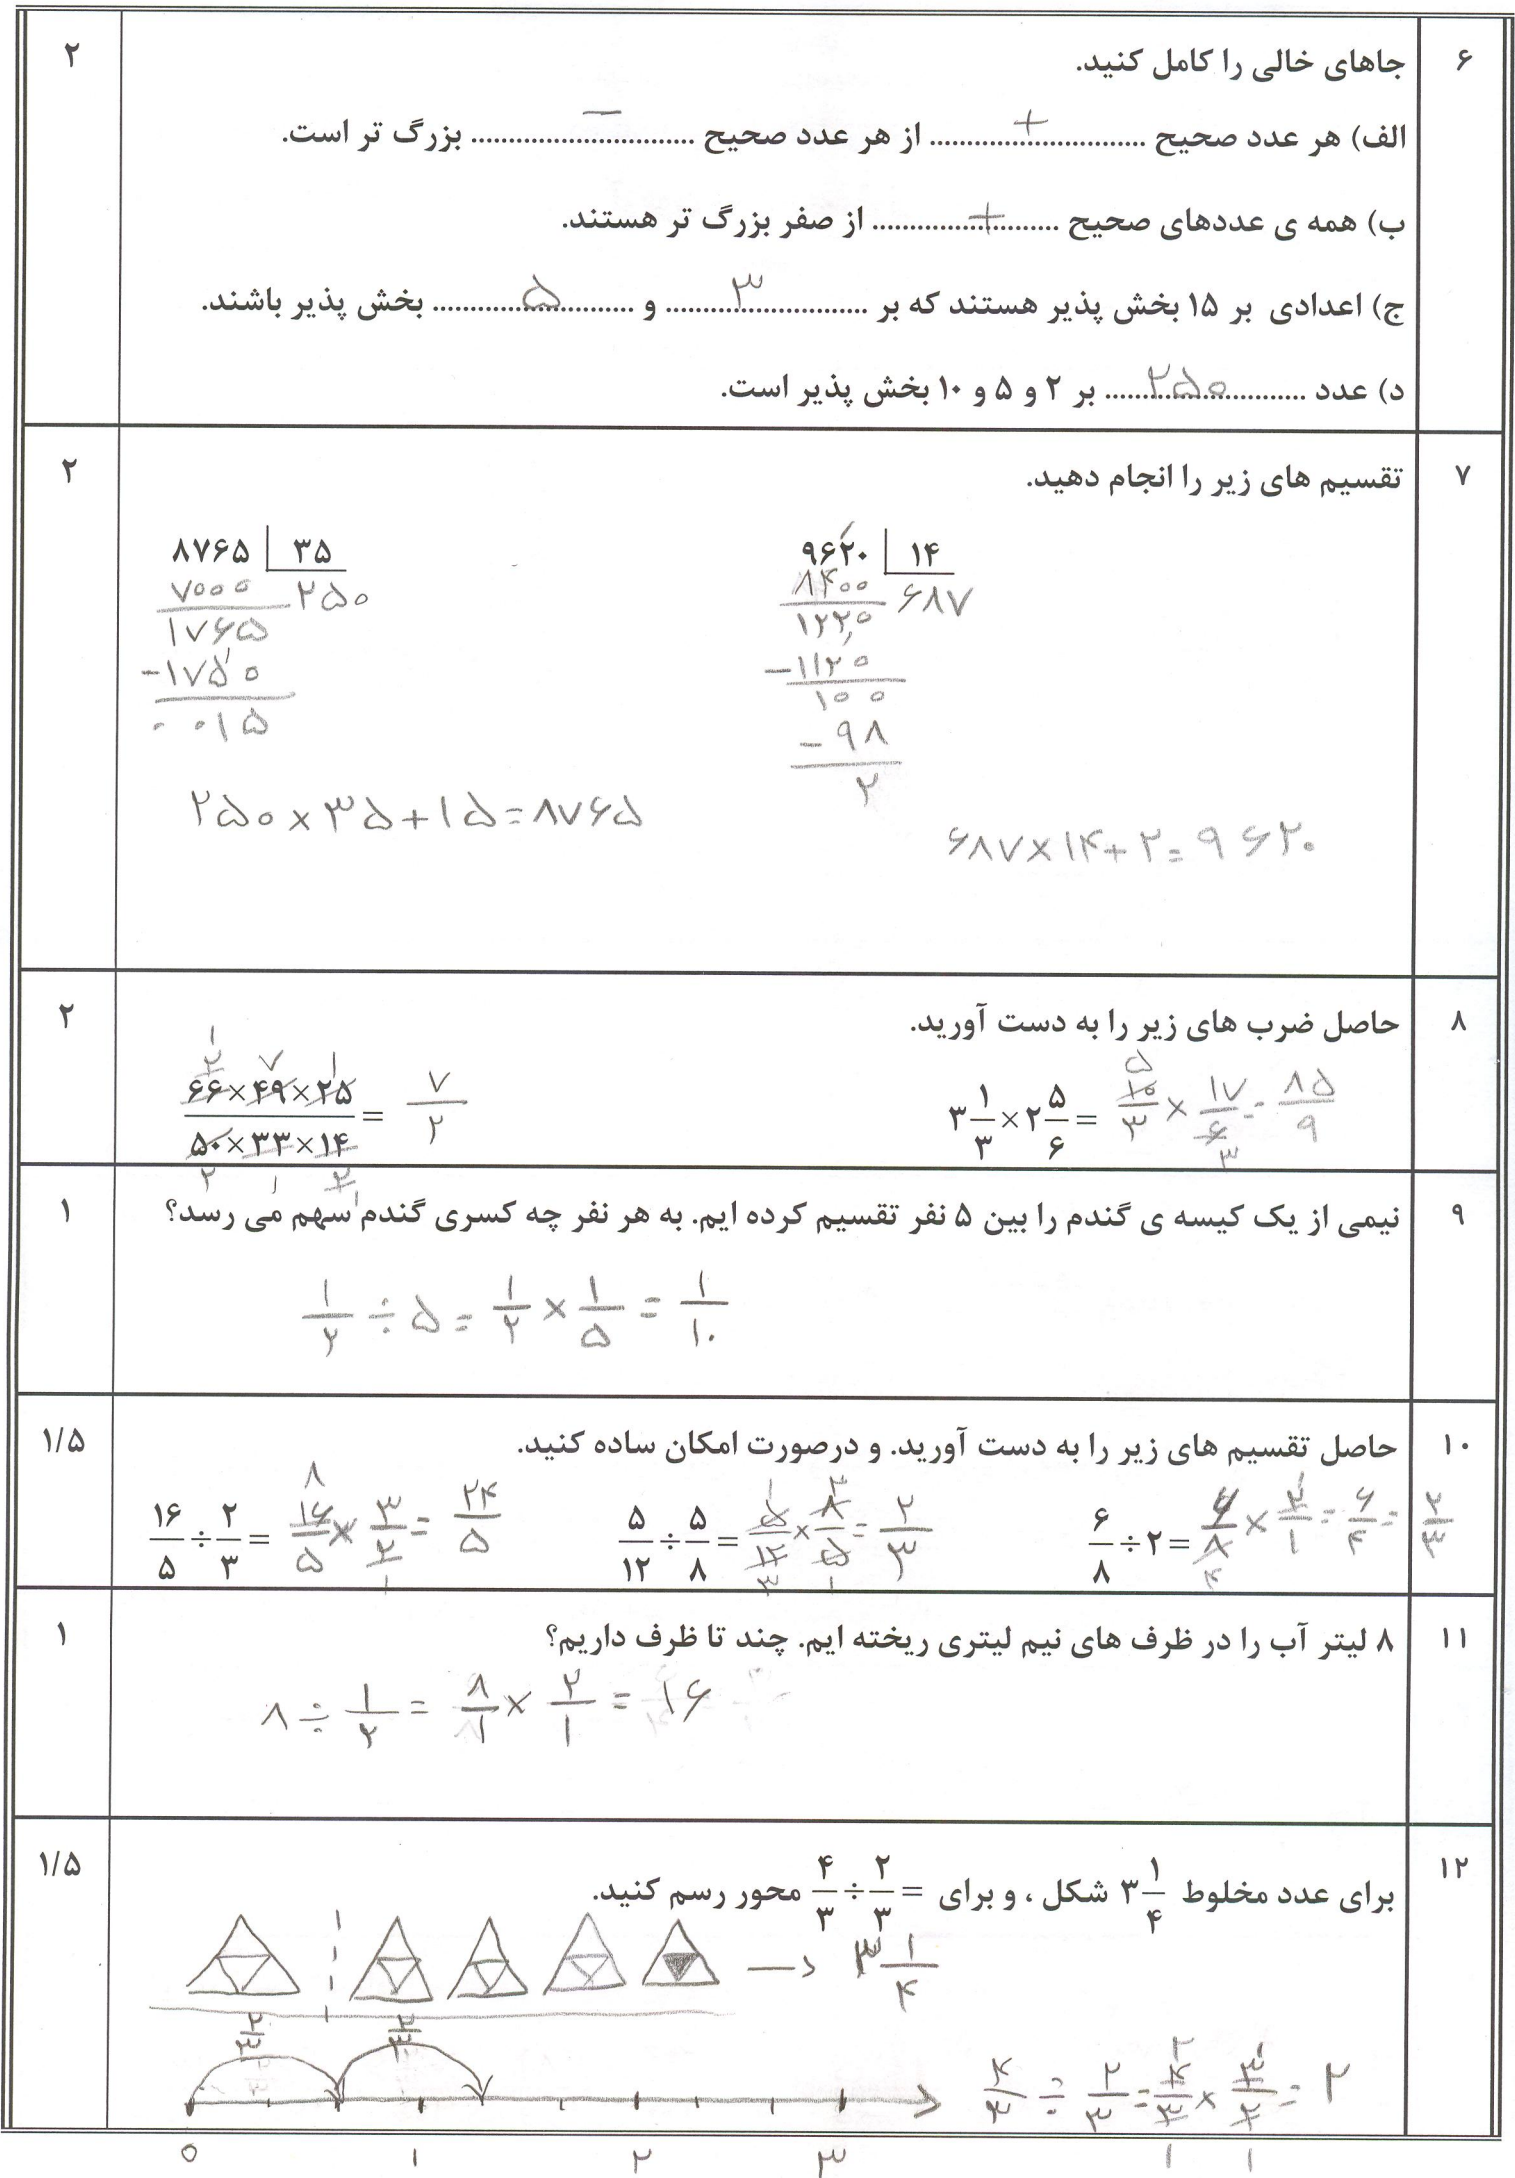 ۶ جاهای خالی را کامل کنید. ۲
الف) هر عدد صحیح ......+...... از هر عدد صحیح ......−...... بزرگ تر است.
ب) همه ی عددهای صحیح ......+...... از صفر بزرگ تر هستند.
ج) اعدادی بر ۱۵ بخش پذیر هستند که بر ......۳...... و ......۵...... بخش پذیر باشند.
د) عدد ......۲۵۰...... بر ۲ و ۵ و ۱۰ بخش پذیر است.
۷ تقسیم های زیر را انجام دهید. ۲
۸۷۶۵ | ۳۵
۷۰۰۰ ۲۵۰
۱۷۶۵
-۱۷۵۰
۰۰۱۵
۲۵۰ × ۳۵ + ۱۵ = ۸۷۶۵
۹۶۲۰ | ۱۴
۸۴۰۰ ۶۸۷
۱۲۲۰
-۱۱۲۰
۱۰۰
-۹۸
۲
۶۸۷ × ۱۴ + ۲ = ۹۶۲۰
۸ حاصل ضرب های زیر را به دست آورید. ۲
۶۶×۴۹×۲۵ / ۵۰×۳۳×۱۴ = ۷/۲
۳ ۱/۳ × ۲ ۵/۶ = ۱۰/۳ × ۱۷/۶ = ۸۵/۹
۹ نیمی از یک کیسه ی گندم را بین ۵ نفر تقسیم کرده ایم. به هر نفر چه کسری گندم سهم می رسد؟ ۱
۱/۲ ÷ ۵ = ۱/۲ × ۱/۵ = ۱/۱۰
۱۰ حاصل تقسیم های زیر را به دست آورید. و درصورت امکان ساده کنید. ۱/۵
۱۶/۵ ÷ ۲/۳ = ۱۶/۵ × ۳/۲ = ۲۴/۵
۵/۱۲ ÷ ۵/۸ = ۵/۱۲ × ۸/۵ = ۲/۳
۶/۸ ÷ ۲ = ۶/۸ × ۲/۱ = ۶/۴ = ۲/۳
۱۱ ۸ لیتر آب را در ظرف های نیم لیتری ریخته ایم. چند تا ظرف داریم؟ ۱
۸ ÷ ۱/۲ = ۸/۱ × ۲/۱ = ۱۶
۱۲ برای عدد مخلوط ۳ ۱/۴ شکل ، و برای = ۲/۳ ÷ ۴/۳ محور رسم کنید. ۱/۵
۳ ۱/۴
۲/۳ ۲/۳
۴/۳ ÷ ۲/۳ = ۴/۳ × ۳/۲ = ۲
۰ ۱ ۲ ۳